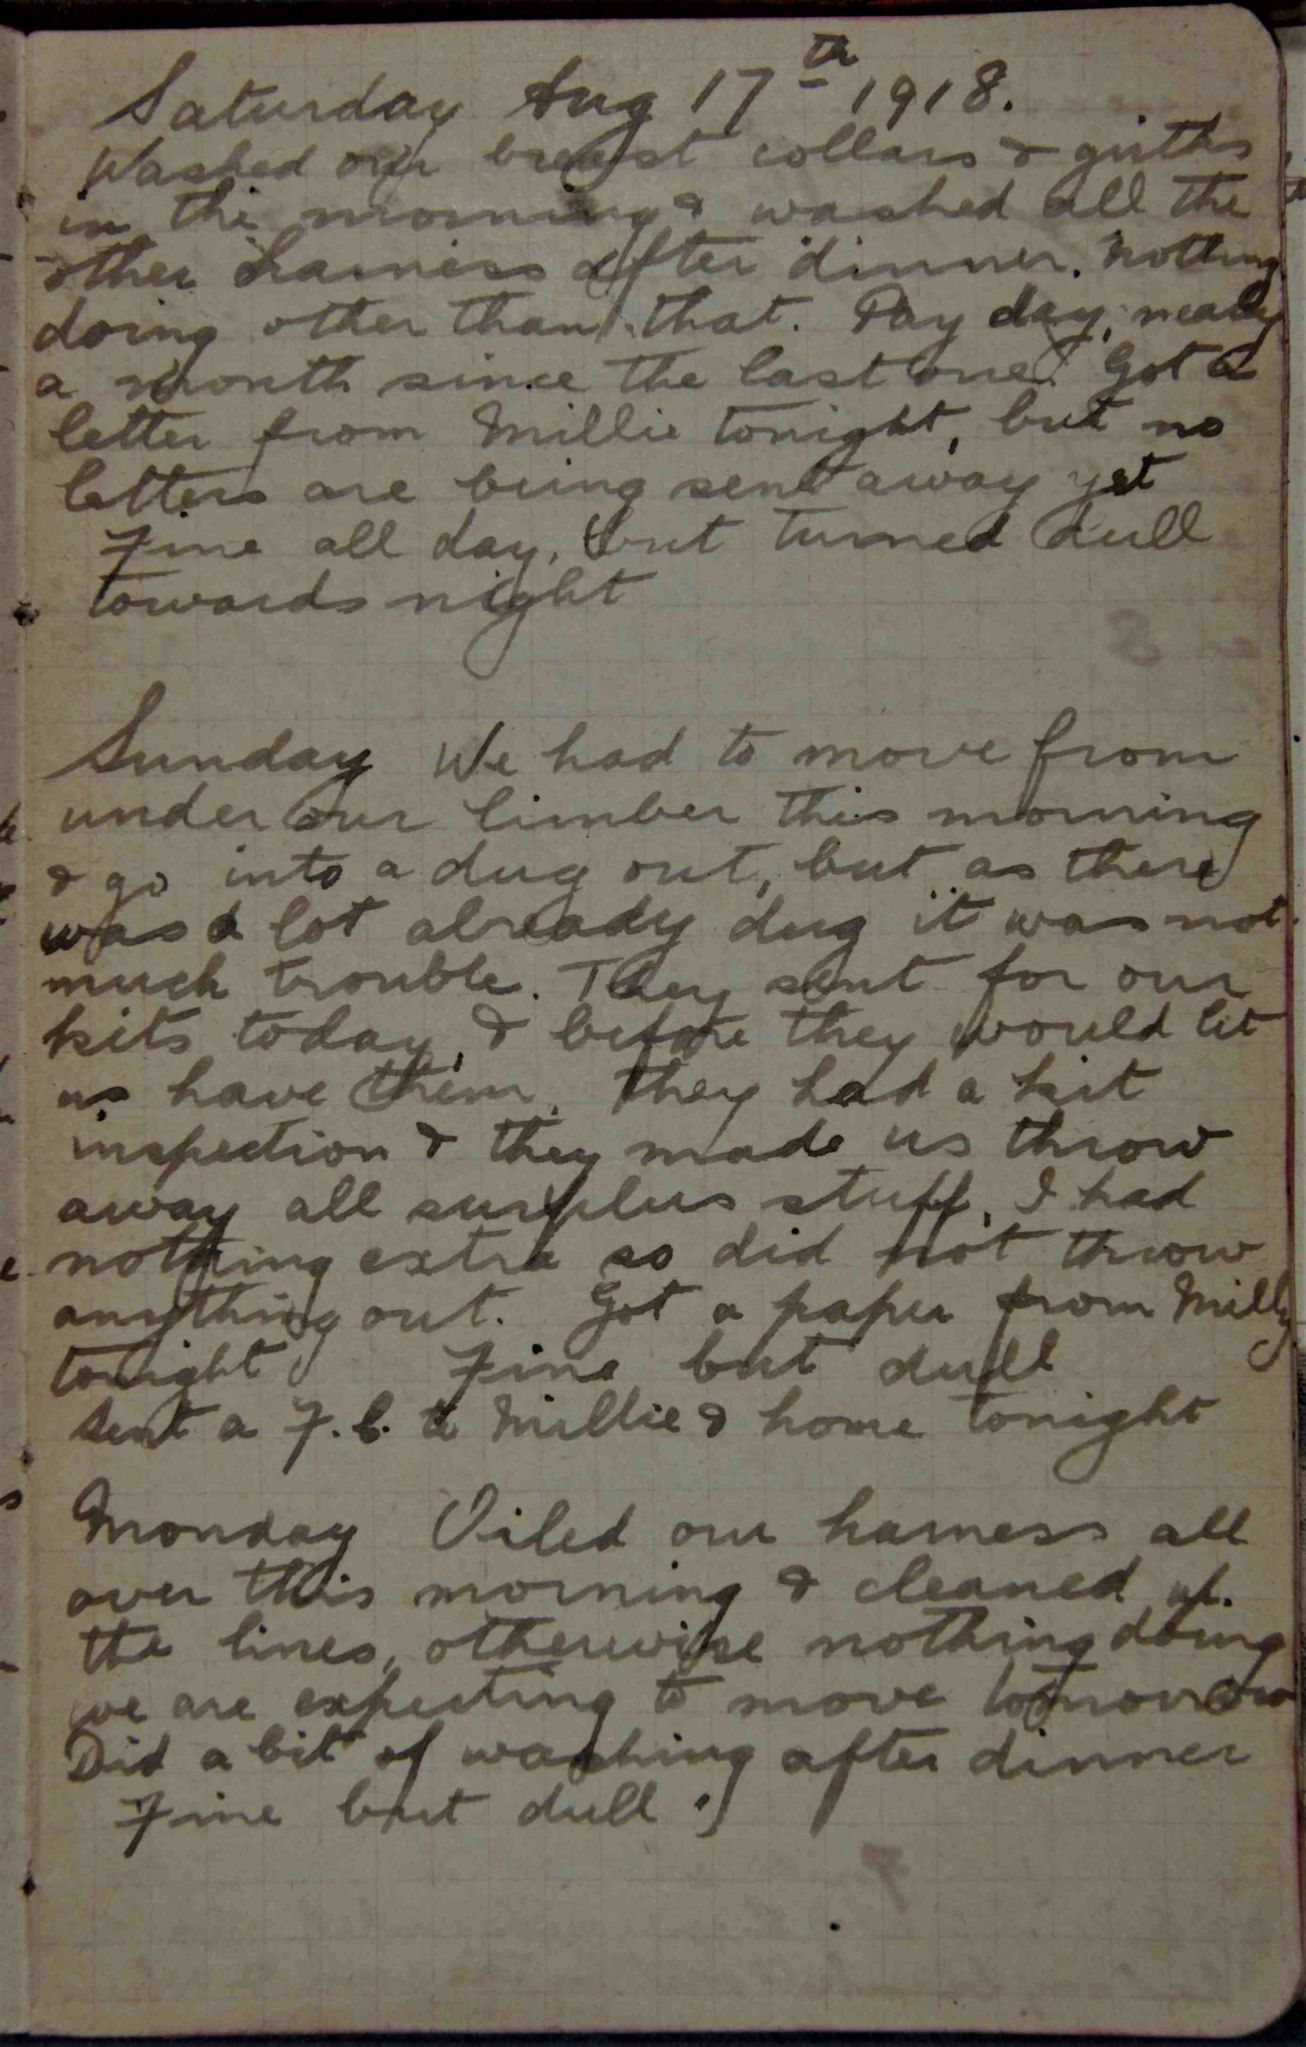 Saturday Aug 17th 1918.
Washed our breast collars & girths
in the morning & washed all the
other harness after dinner. Nothing
doing other than that. Pay day, nearly
a month since the last one. Got a
letter from Millie tonight, but no
letters are being sent away yet
Fine all day, but turned dull
towards night
Sunday We had to move from
under our limber this morning
& go into a dug out, but as there
was a lot already dug it was not
much trouble. They sent for our
kits today & before they would let
us have them, they had a kit
inspection & they made us throw
away all surplus stuff, I had
nothing extra so did not throw
anything out. Got a paper from Milly
tonight Fine but dull
Sent a F.C. to Millie & home tonight
Monday Oiled our harness all
over this morning & cleaned up
the lines, otherwise nothing doing
we are expecting to move tomorrow
Did a bit of washing after dinner
Fine but dull.